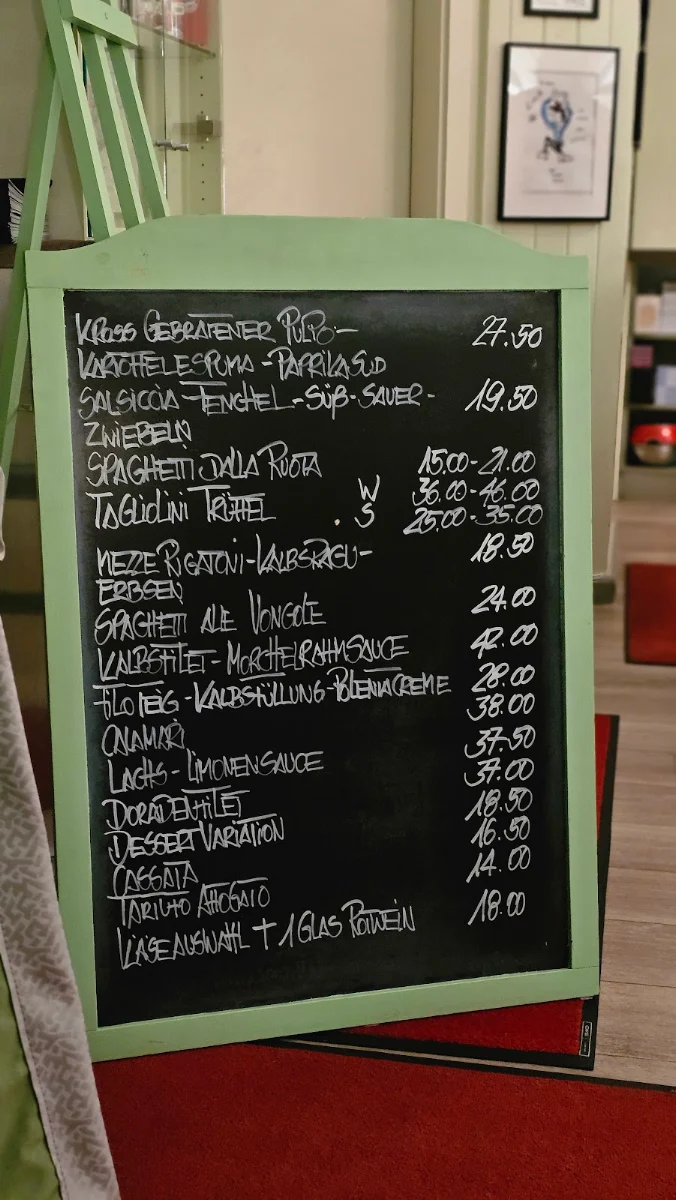 KROSS GEBRATENER PULPO - 27.50
KARTOFFELESPUMA - PAPRIKASUD
SALSICCIA - FENCHEL - SÜß - SAUER - 19.50
ZWIEBELN
SPAGHETTI DALLA RUOTA 15.00 - 21.00
W 36.00 - 46.00
TAGLIOLINI TRÜFFEL . S 25.00 - 35.00
MEZZE RIGATONI - KALBSRAGU - 18.50
ERBSEN
SPAGHETTI ALE VONGOLE 24.00
KALBSFILET - MORCHELRAHMSAUCE 42.00
FILOTEIG - KALBSFÜLLUNG - POLENTACREME 28.00
CALAMARI 38.00
LACHS - LIMONENSAUCE 37.50
DORADENFILET 37.00
DESSERT VARIATION 18.50
CASSATA 16.50
TARTUFO AFFOGATO 14.00
KÄSEAUSWAHL + 1 GLAS ROTWEIN 18.00